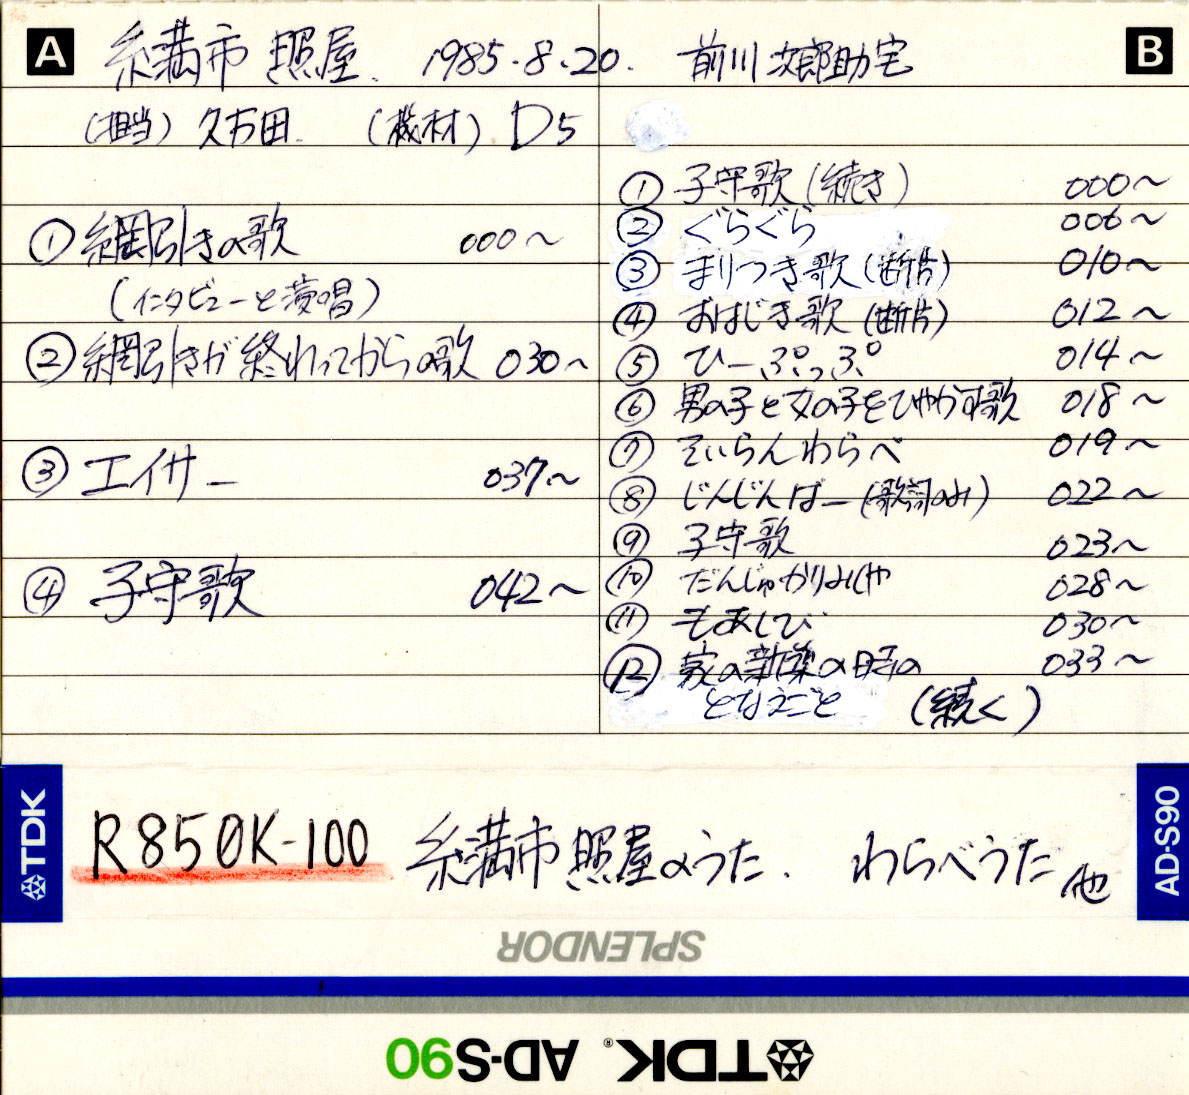 A 糸満市 照屋. 1985.8.20. 前川次郎助宅 B
(担当) 久万田. (機材) D5
① 綱引きの歌 000~
(インタビューと演唱)
② 綱引きが終わってからの歌 030~
③ エイサー 037~
④ 子守歌 042~
① 子守歌(続き) 000~
② ぐらぐら 006~
③ まりつき歌(断片) 010~
④ おはじき歌(断片) 012~
⑤ ひーぷっぷ 014~
⑥ 男の子と女の子をひやかす歌 018~
⑦ てぃらんわらべ 019~
⑧ じんじんばー(歌詞のみ) 022~
⑨ 子守歌 023~
⑩ だんじゅかりゆしや 028~
⑪ もあしび 030~
⑫ 家の新築の時の 033~
となえごと (続く)
TDK R850K-100 糸満市照屋のうた. わらべうた 他 AD-S90
SPLENDOR
TDK® AD-S90